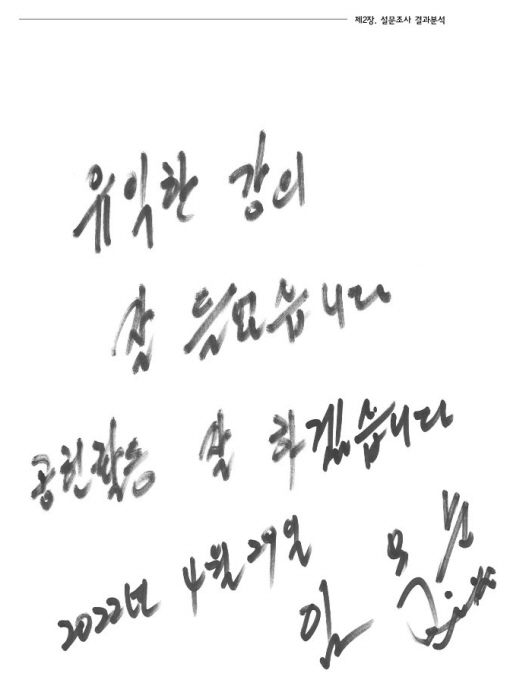 제2장. 설문조사 결과분석
유익한 강의
잘 들었습니다
공헌활동 잘 하겠습니다
2022년 4월 29일